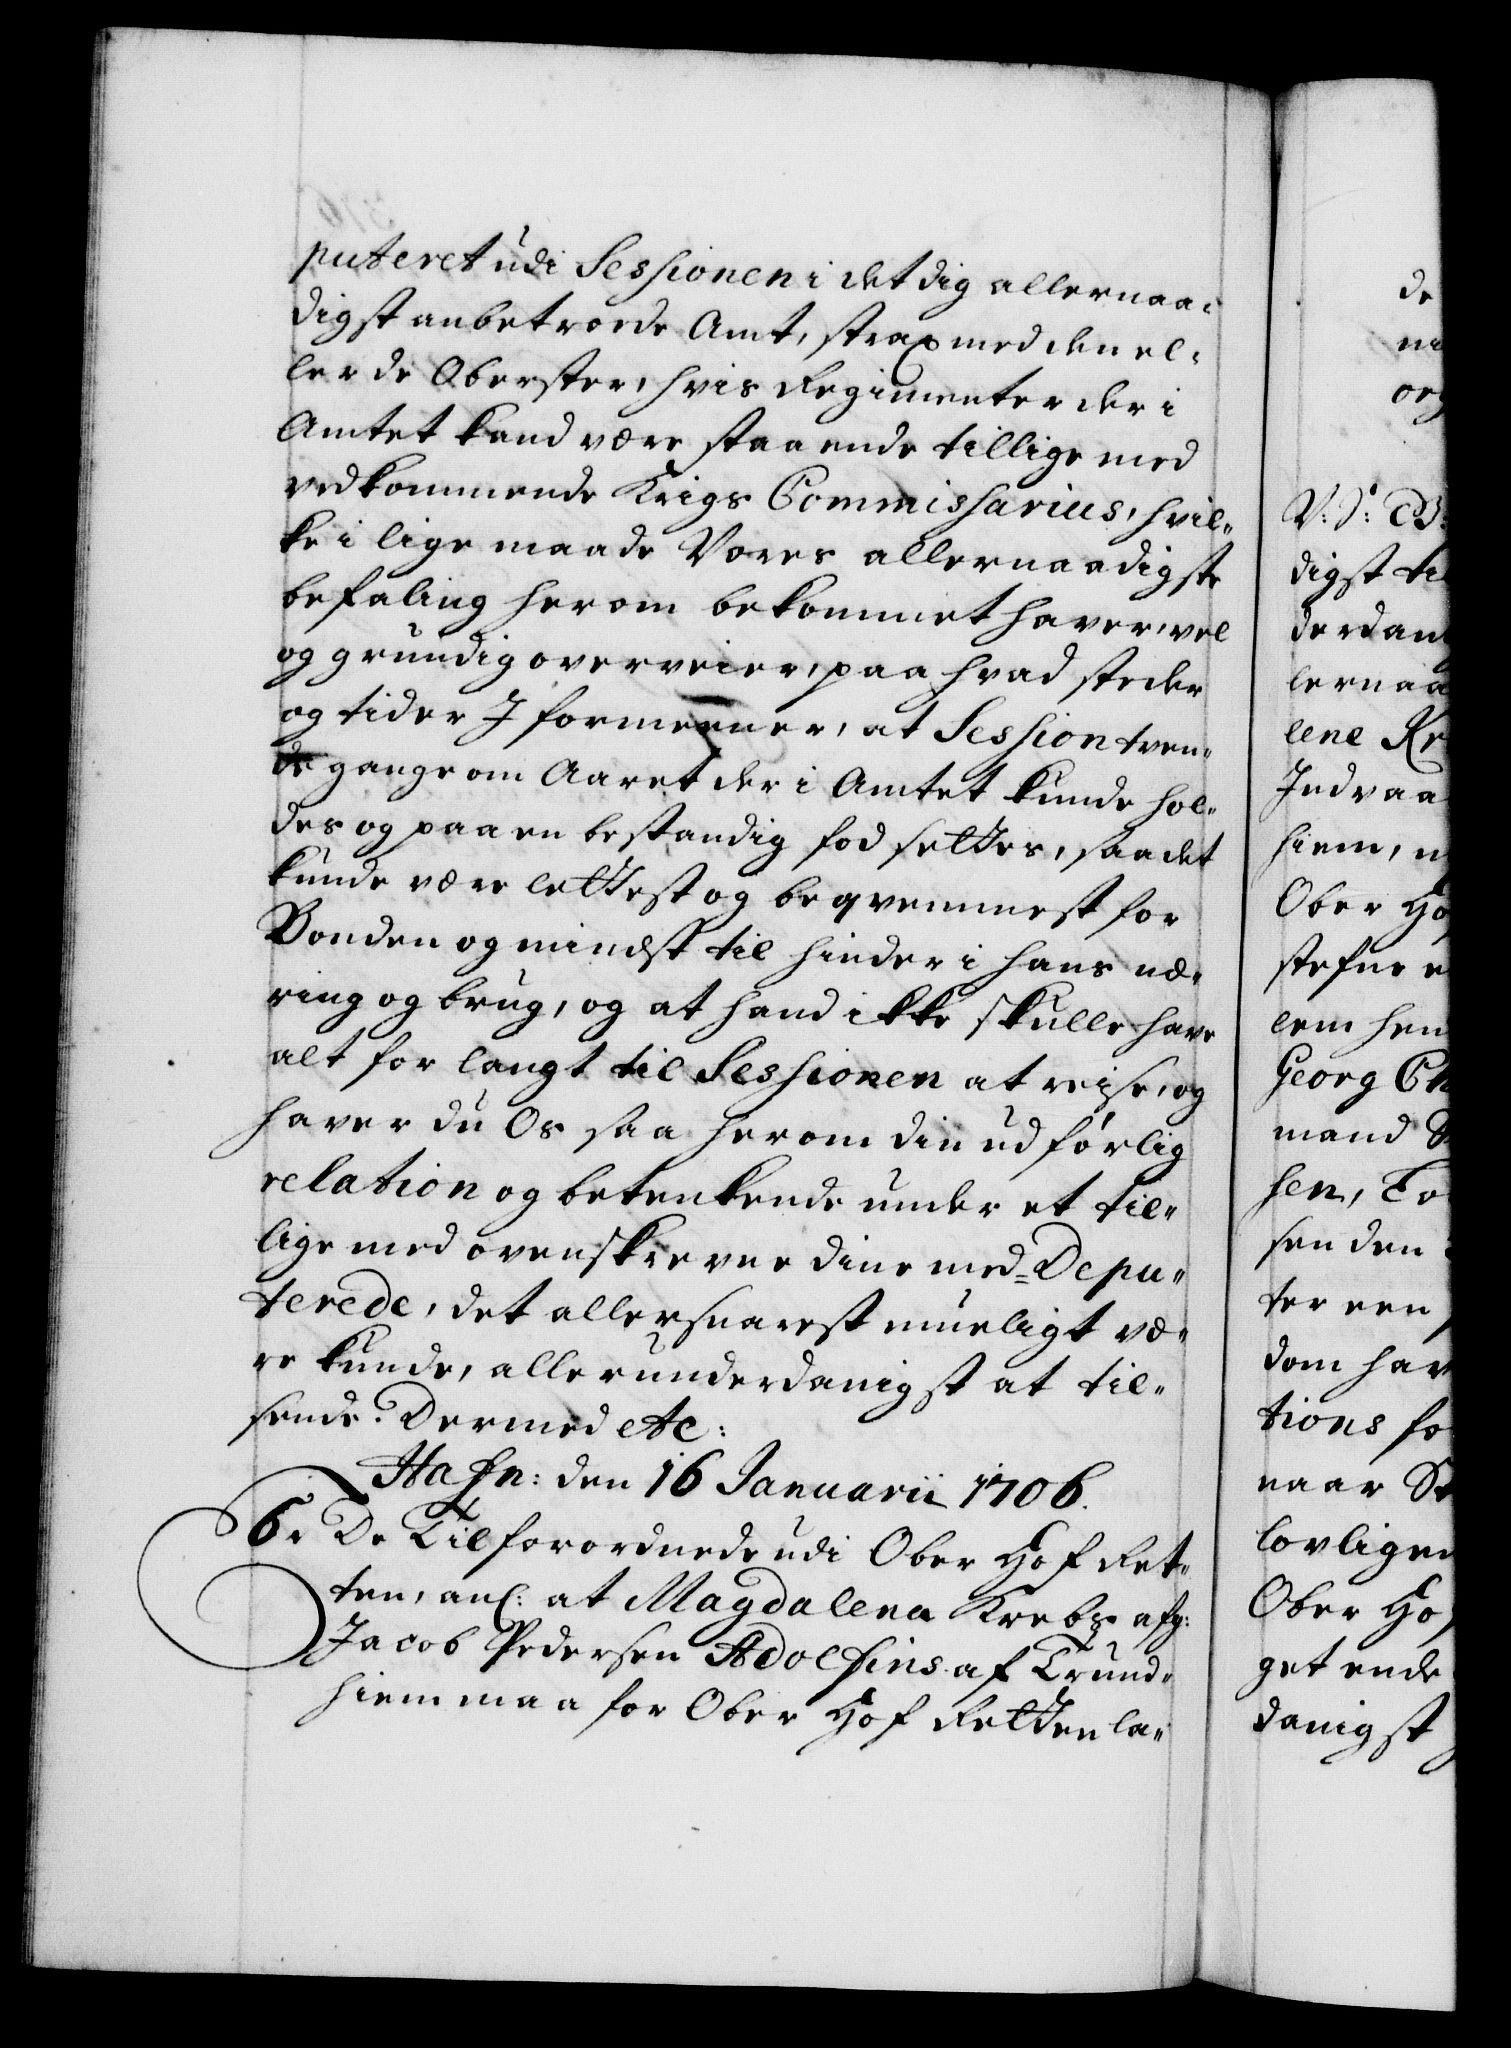 puteret udi Sessionen i det dig allernaa¬
digst anbetroede Amt, strax med den el¬
ler de Oberster, hvis Regimenter der i
Amtet kand være staaende tillige med
vedkommende Krigs Commissarius, hvil¬
ke i lige maade Vores allernaadigste
befaling herom bekommet haver, vel
og grundig overveier, paa hvad steder
og tider I formeener, at Session tven¬
de gange om Aaret der i Amtet kunde hol¬
des og paa en bestandig fod settes, saa det
kunde være lettest og beqvemmest for
Bonden og mindst til hinder i hans næ¬
ring og brug, og at hand ikke skulle have
alt for langt til Sessionen at reise, og
haver du Os saa herom din udførlig
relation og betenkende under et til¬
lige med ovenskrevne dine med=Depu¬
terede, det allersnarest mueligt væ¬
re kunde, allerunderdanigst at til¬
sende. Dermed etc:
Hafn: den 16 Januarii 1706.
6. De Tilforordnede udi Ober Hof Ret¬
ten, anl: at Magdalena Krebs afg:
Jacob Pedersen Adolfins af Trund¬
hiem maa for Ober Hof Retten la¬
de
V: S: B:
digst til
derdan
lernaa
lene Kr
Indvaa
hiem,
Ober Ho
stefne
lem hen
Georg Ch
mand
sen, To
sen den
ter een
dom hav
tions fo
naar St
lovligen
Ober Ho
get ende
danigst